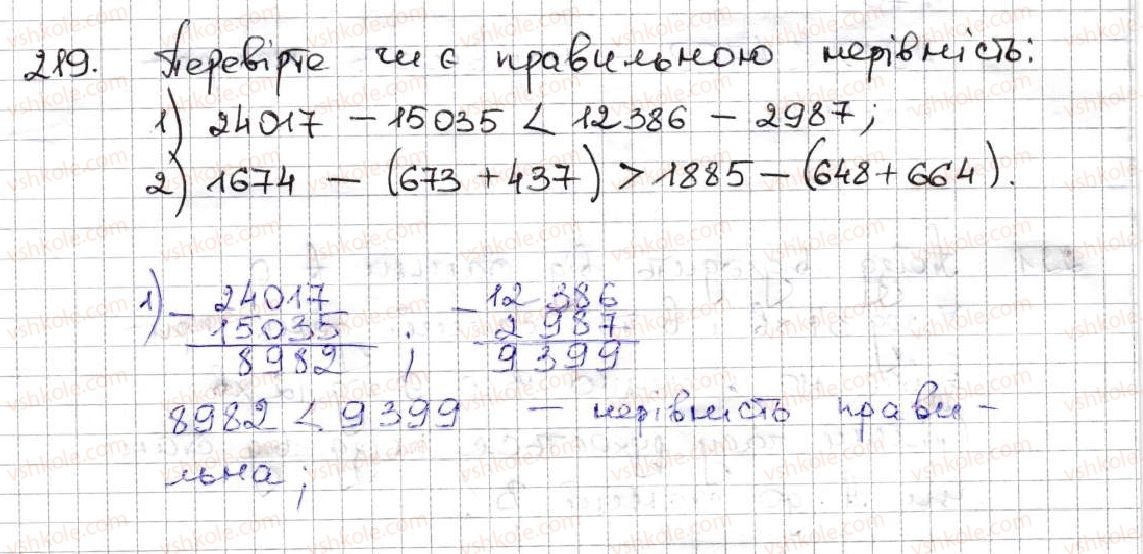 219. Перевірте чи є правильною нерівність:
1) 24017 - 15035 < 12386 - 2987;
2) 1674 - (673 + 437) > 1885 - (648 + 664).
1) - 24017 - 12386
15035 ; 2987
8982 9399
8982 < 9399 - нерівність прави-
льна;
vshkole.com